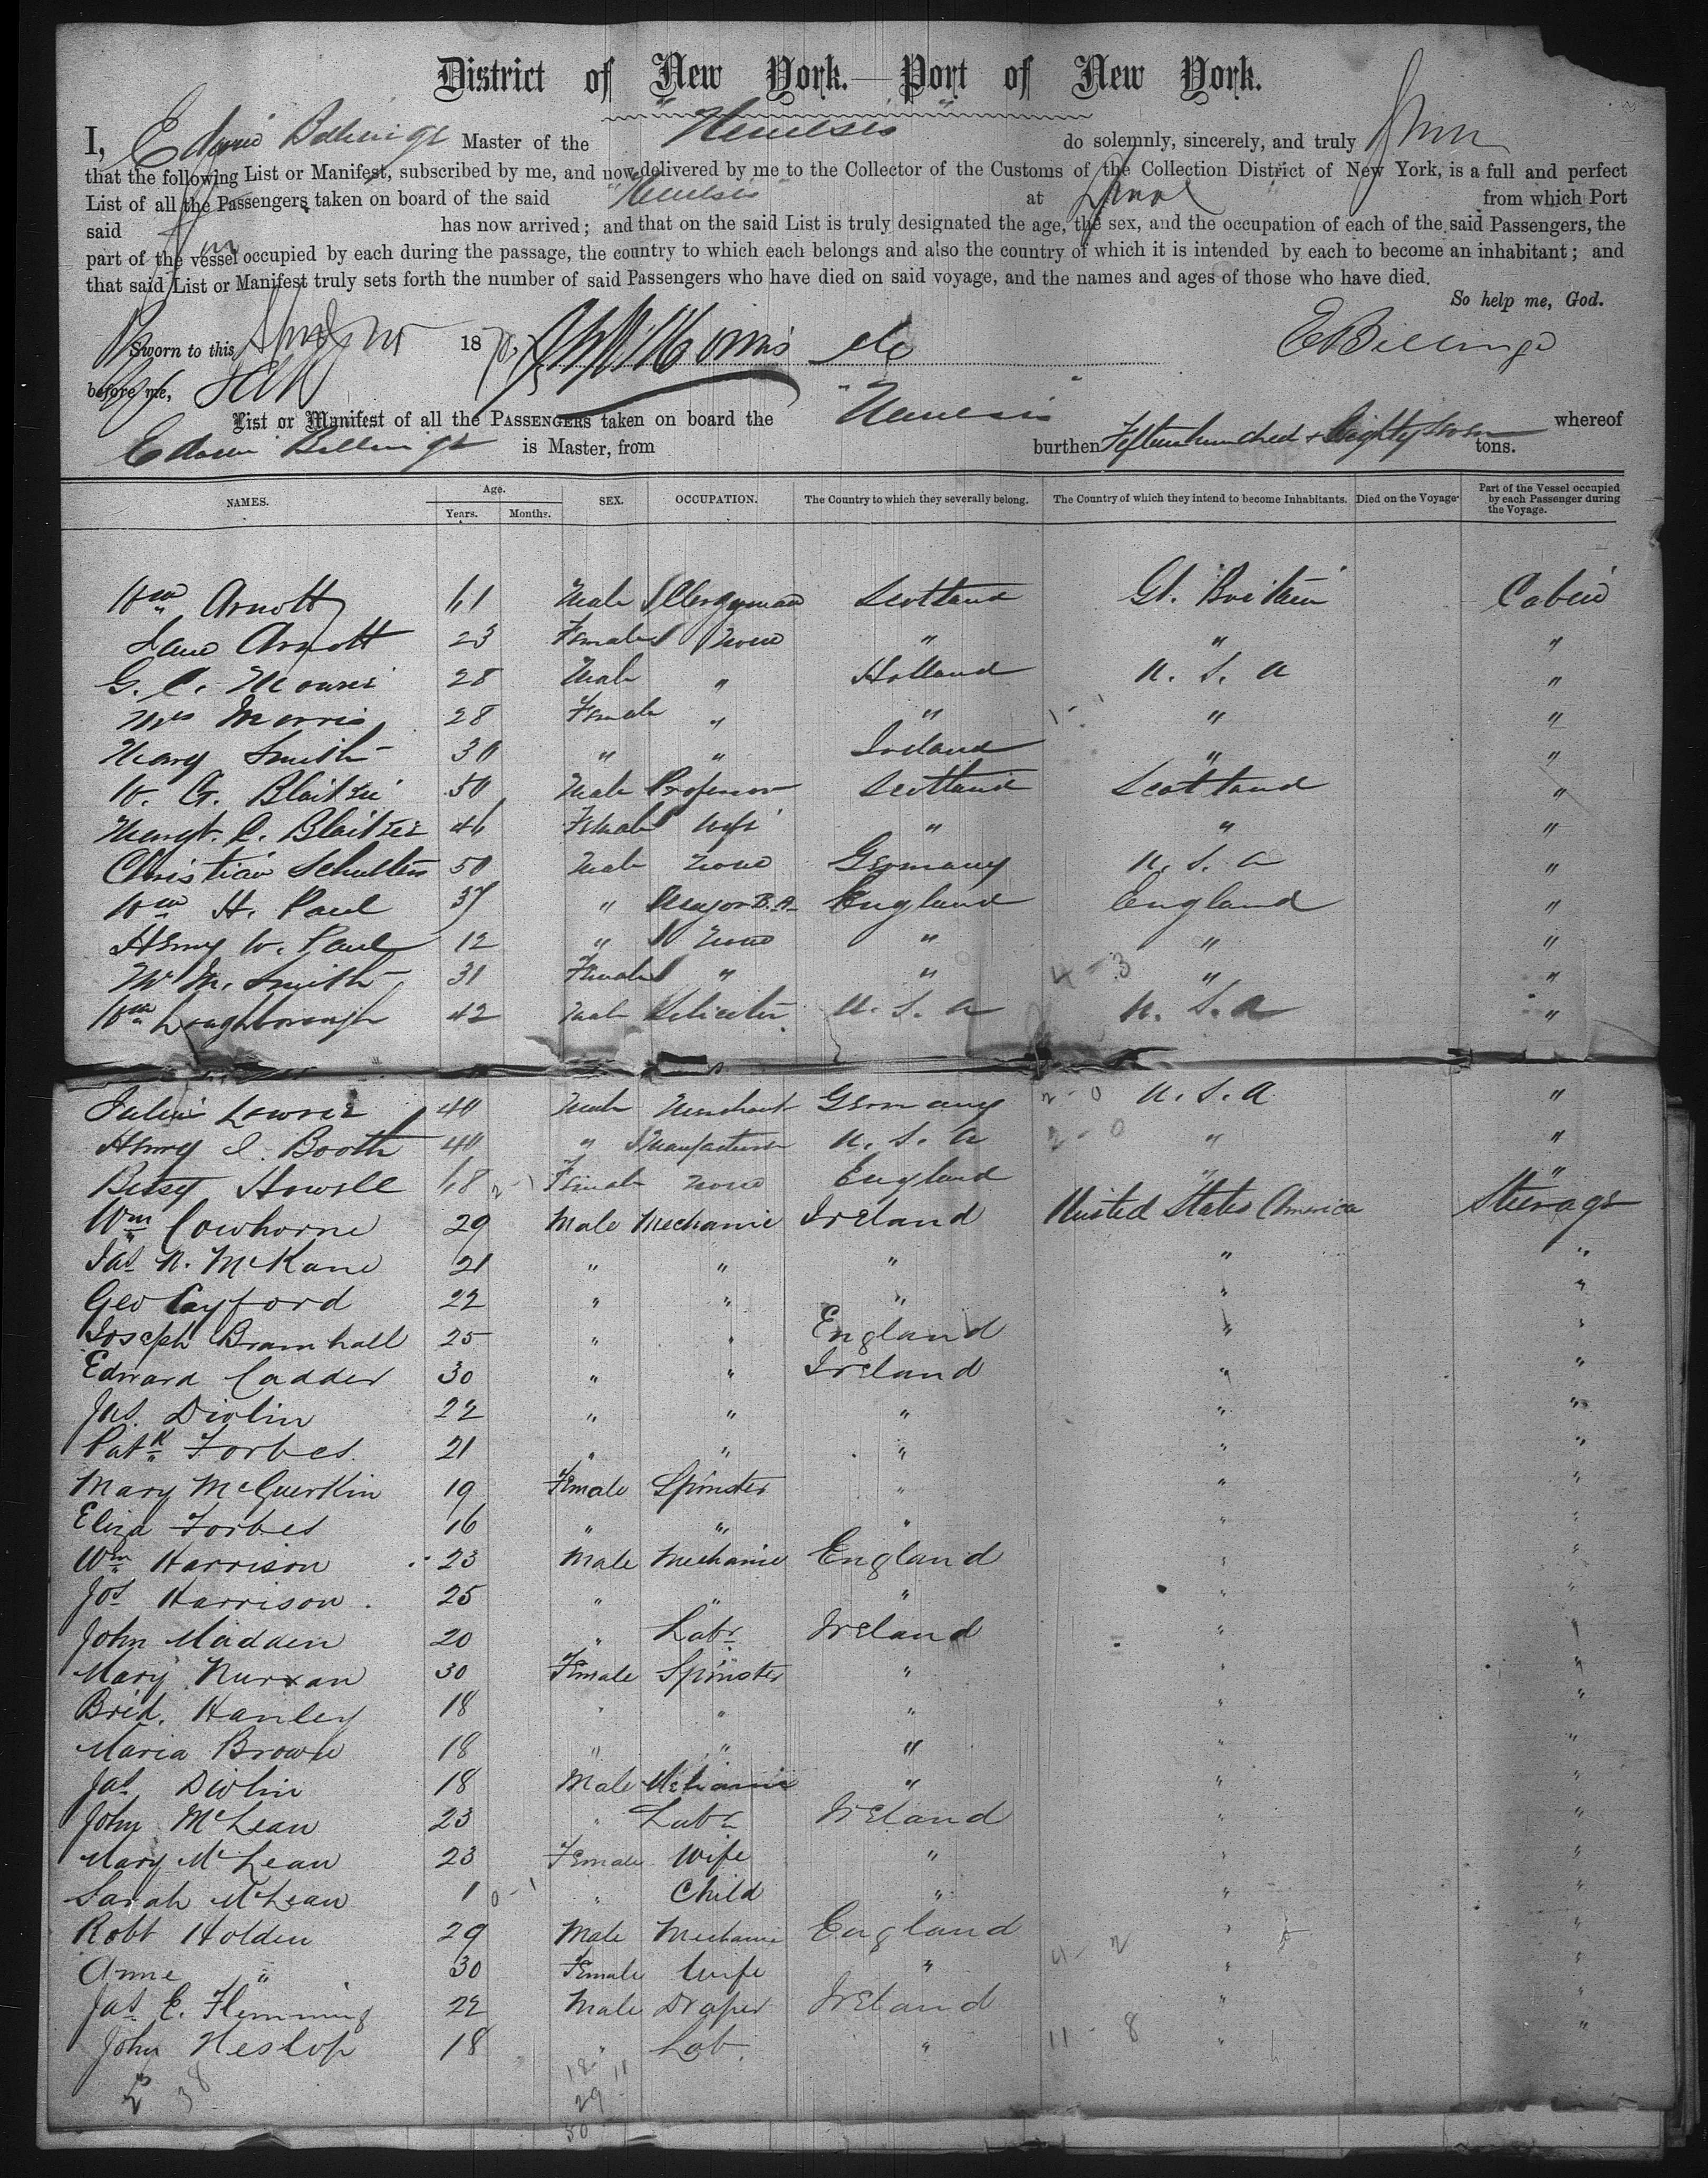 District of New York.—Port of New York.
I, Edwin Billinge Master of the "Nemesis" do solemnly, sincerely, and truly
that the following List or Manifest, subscribed by me, and now delivered by me to the Collector of the Customs of the Collection District of New York, is a full and perfect
List of all the Passengers taken on board of the said "Nemesis" at from which Port
said has now arrived; and that on the said List is truly designated the age, the sex, and the occupation of each of the said Passengers, the
part of the vessel occupied by each during the passage, the country to which each belongs and also the country of which it is intended by each to become an inhabitant; and
that said List or Manifest truly sets forth the number of said Passengers who have died on said voyage, and the names and ages of those who have died.
So help me, God.
Sworn to this 1870 E Billinge
before me,
List or Manifest of all the PASSENGERS taken on board the "Nemesis" whereof
Edwin Billinge is Master, from burthen Fifteen hundred & Eighty Seven tons.
NAMES. Age. Years. Months. SEX. OCCUPATION. The Country to which they severally belong. The Country of which they intend to become Inhabitants. Died on the Voyage. Part of the Vessel occupied by each Passenger during the Voyage.
Wm Arnott 61 Male Clergyman Scotland Gt. Britain Cabin
Jane Arnott 23 Female None " " "
G. C. 28 Male " Holland U. S. A "
Mrs Morris 28 Female " " " "
Mary Smith 30 " " Ireland " "
W. G. Blaikie 50 Male Professor Scotland Scotland "
Margt. C. Blaikie 46 Female Wife " " "
Christian Schulten 50 Male None Germany U. S. A "
Wm H. Paul 37 " Major B.A. England England "
Henry W. Paul 12 " None " " "
M. Smith 31 Female " " 4-3 " "
Wm Loughborough 42 Male Solicitor U. S. A U. S. A "
Julius 40 Male Merchant Germany 2-0 U. S. A "
Henry I. Booth 40 " Manufacturer U. S. A 2-0 " "
Betsy Howell 68 2-1 Female None England " "
Wm Cowhorne 29 Male Mechanic Ireland United States America Steerage
Jas N. McKane 21 " " " " "
Geo Cayford 22 " " " " "
Joseph Bramhall 25 " " England " "
Edward Cadder 30 " " Ireland " "
Jas. Divlin 22 " " " " "
Patk Forbes 21 " " " " "
Mary McGuerkin 19 Female Spinster " " "
Eliza Forbes 16 " " " " "
Wm Harrison 23 Male Mechanic England " "
Jos Harrison 25 " " " " "
John Madden 20 " Labr Ireland " "
Mary Nurxan 30 Female Spinster " " "
Brid. Hanley 18 " " " " "
Maria Brown 18 " " " " "
Jas Divlin 18 Male Mechanic " " "
John McLean 23 " Labr Ireland " "
Mary McLean 23 Female Wife " " "
Sarah McLean 1 0-1 " Child " " "
Robt Holden 29 Male Mechanic England 4-2 " "
Anne " 30 Female Wife " " "
Jas. E. Flemming 22 Male Draper Ireland " "
John Heslop 18 " Lab. " 11-8 " "
38 18 11
29
50